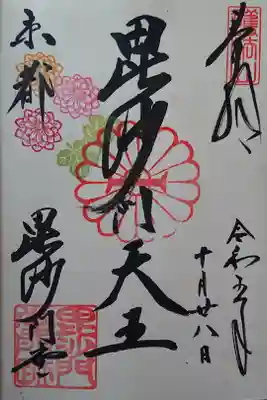 奉拝
令和五年
十月廿八日
毘沙門天王
京都
毘沙門堂